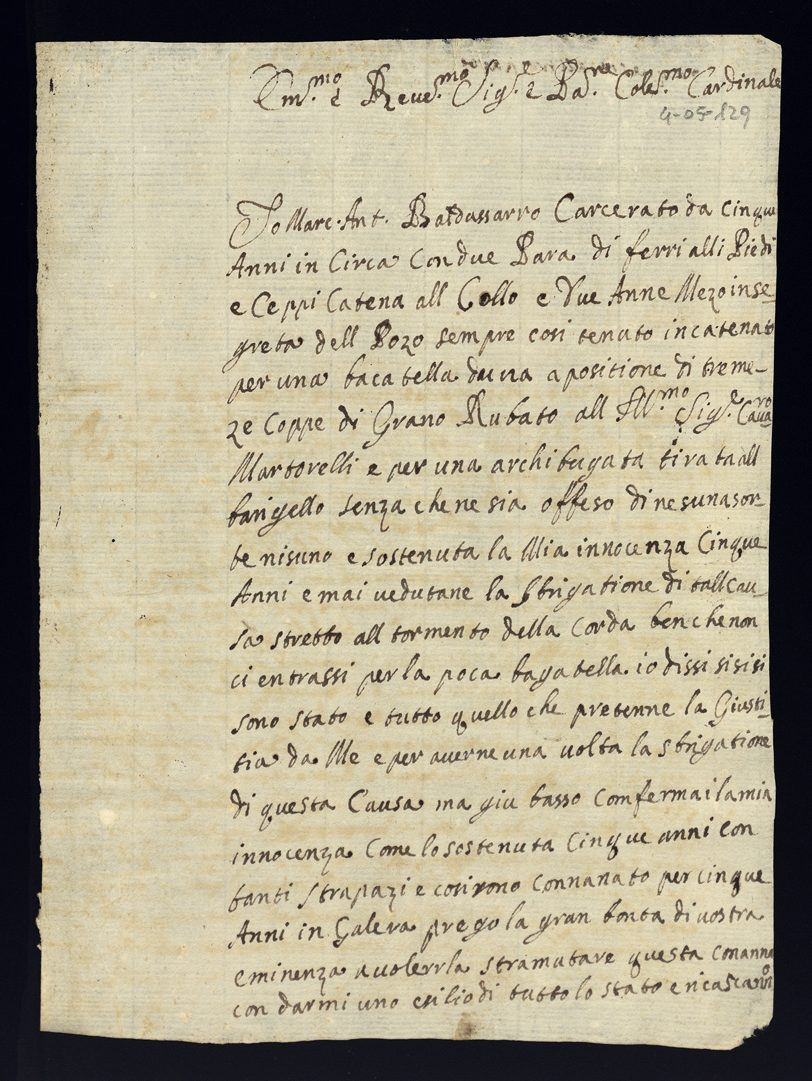 Em.mo è Reve.mo Sig.e e Pad.ne Coles.mo Cardinale
4-05-129
Io Marc. Ant. Baldassarro Carcerato da cinque
Anni in Circa con due Para di ferri alli Piedi
e Ceppi Catena all Collo e Due Anne Mezo in se_
greta dell Pozo sempre cosi tenuto incatenato
per una bacatella duna apositione di treme_
ze coppe di Grano Rubato all Ill.mo Sig.e Cava.ro
Martorelli e per una archibugata tirata all
barigello senza che ne sia offeso di nesuna sor_
te nisuno e sostenuta la Mia innocenza Cinque
Anni e mai vedutane la strigatione di tall cau_
sa stretto all tormento della corda benche non
ci entrassi per la poca bagatella io dissi si si si
sono stato e tutto quello che pretenne la Giusti_
tia da Me e per averne una volta la strigatione
di questa Causa ma giu basso comfermai la mia
innocenza Come lo sostenuta cinque anni con
tanti strapazi e cosi sono connanato per cinque
Anni in Galera prego la gran bonta di vostra
eminenza a volerrla stramutare questa conanna
con darmi uno esilio di tutto lo stato e ricascandoci